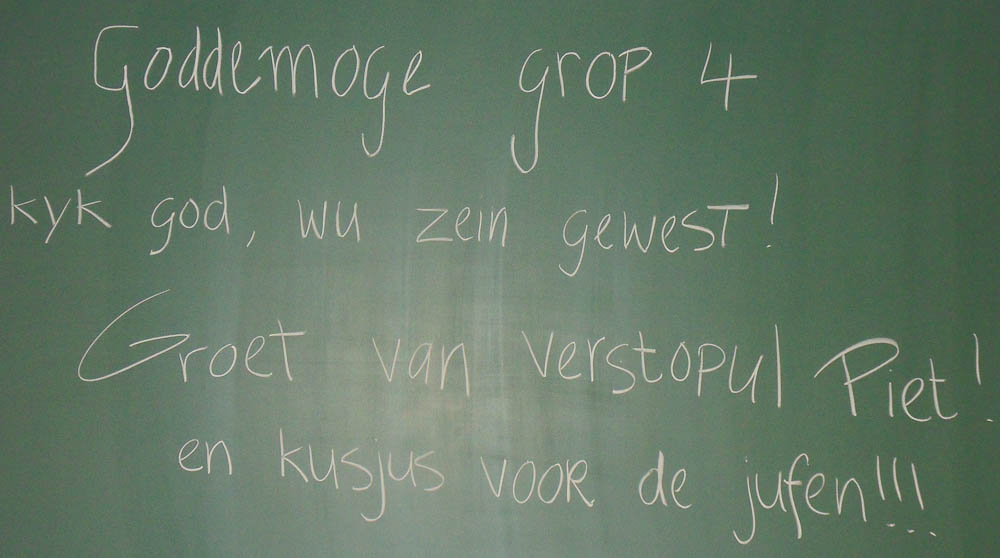 Goddemoge grop 4
kyk god, wu zein gewest!
Groet van verstopul Piet!
en kusjus voor de jufen!!!